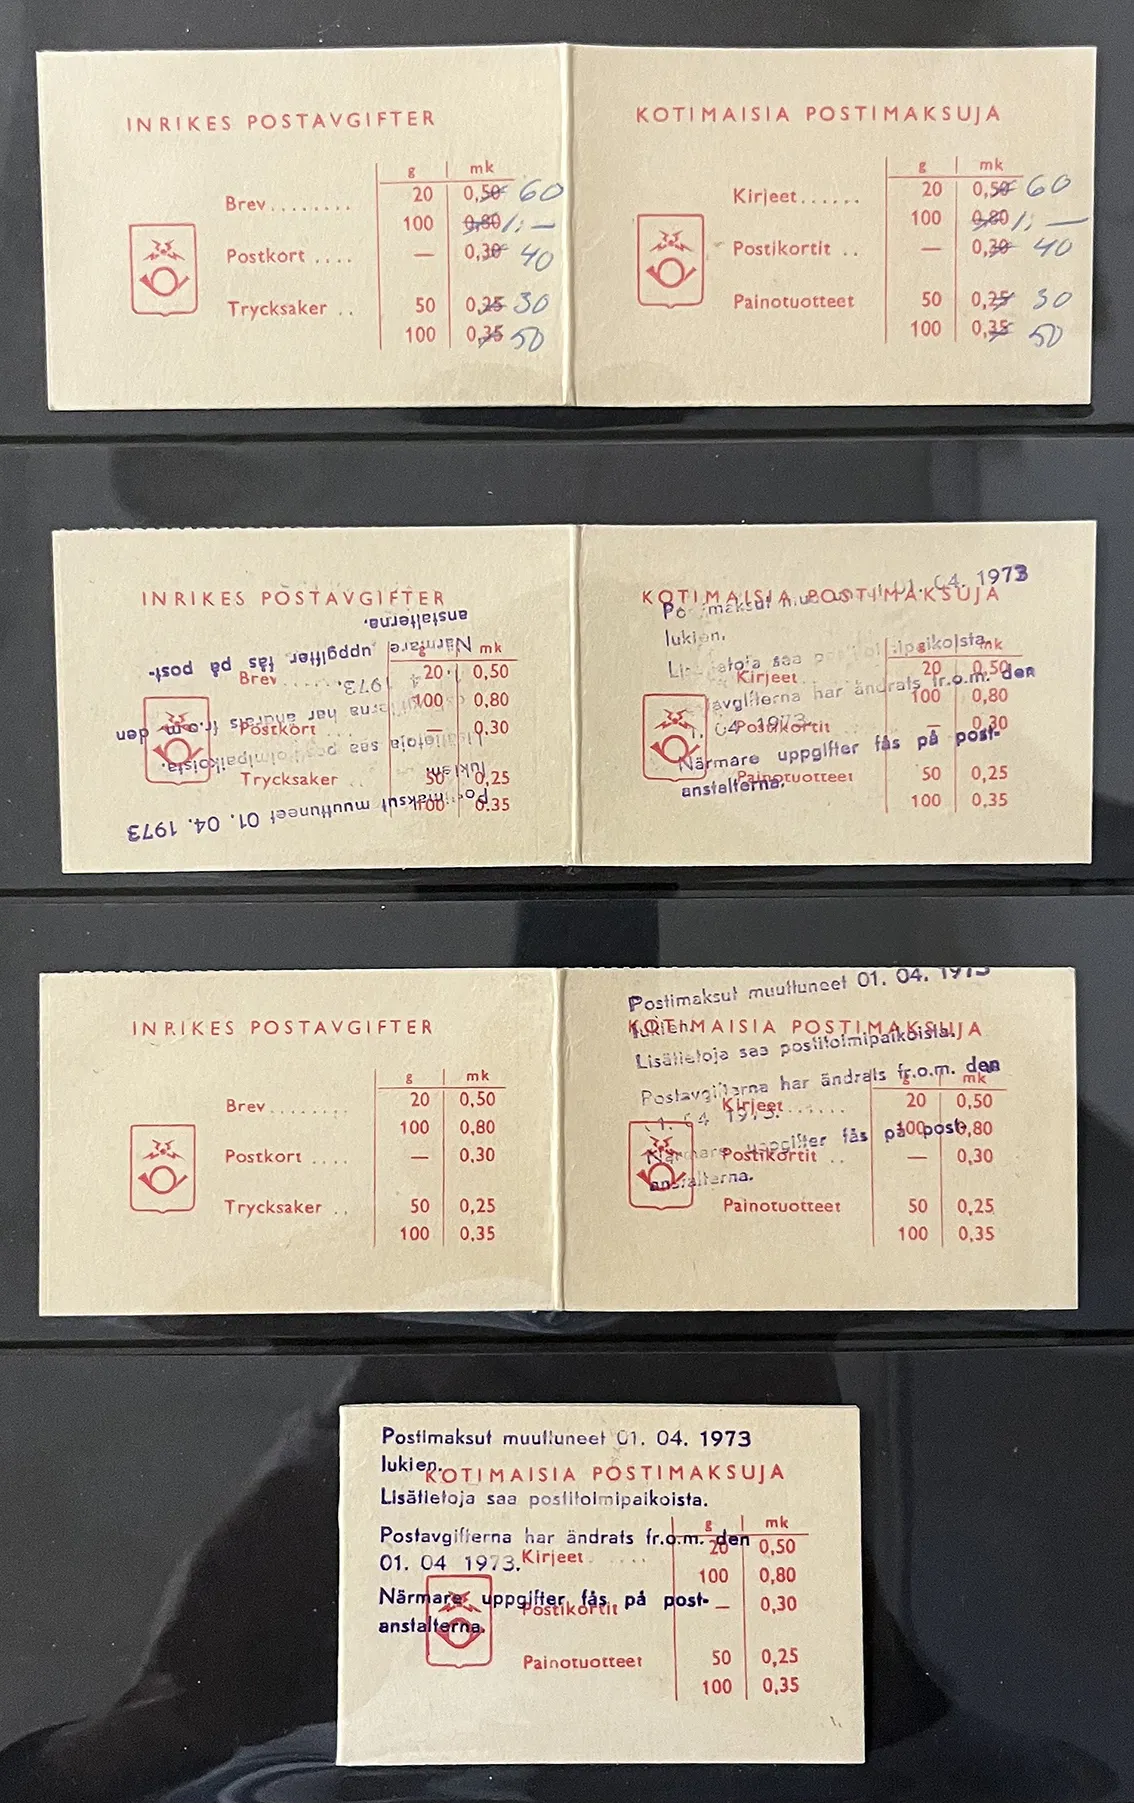 INRIKES POSTAVGIFTER
g mk
Brev........ 20 0,50 60
100 0,80 1,—
Postkort .... — 0,30 40
Trycksaker .. 50 0,25 30
100 0,35 50
KOTIMAISIA POSTIMAKSUJA
g mk
Kirjeet...... 20 0,50 60
100 0,80 1,—
Postikortit .. — 0,30 40
Painotuotteet 50 0,25 30
100 0,35 50
INRIKES POSTAVGIFTER
g mk
Brev........ 20 0,50
100 0,80
Postkort — 0,30
Trycksaker .. 50 0,25
100 0.35
muuttuneet 01. 04. 1973
lukien
Lisätietoja saa postitoimipaikoista.
har ändrats fr.o.m. den
1973.
Närmare uppgifter fås på post-
anstalterna.
KOTIMAISIA POSTIMAKSUJA
g mk
Kirjeet 20 0,50
100 0,80
Postikortit — 0,30
Painotuotteet 50 0,25
100 0,35
04. 1973
lukien.
saa
har ändrats fr.o.m. den
04 1973.
Närmare uppgifter fås på post-
anstalterna.
INRIKES POSTAVGIFTER
g mk
Brev........ 20 0,50
100 0,80
Postkort .... — 0,30
Trycksaker .. 50 0,25
100 0,35
KOTIMAISIA POSTIMAKSUJA
g mk
Kirjeet...... 20 0,50
100 0,80
Postikortit .. — 0,30
Painotuotteet 50 0,25
100 0,35
Postimaksut muuttuneet 01. 04. 1973
lukien.
Lisätietoja saa postitoimipaikoista.
Postavgifterna har ändrats fr.o.m. den
04 1973.
Närmare uppgifter fås på post-
anstalterna.
Postimaksut muuttuneet 01. 04. 1973
lukien.
KOTIMAISIA POSTIMAKSUJA
Lisätietoja saa postitoimipaikoista.
g mk
Postavgifterna har ändrats fr.o.m. den
01. 04 1973.
Kirjeet .... 20 0,50
100 0,80
Närmare uppgifter fås på post-
anstalterna.
Postikortit — 0,30
Painotuotteet 50 0,25
100 0,35